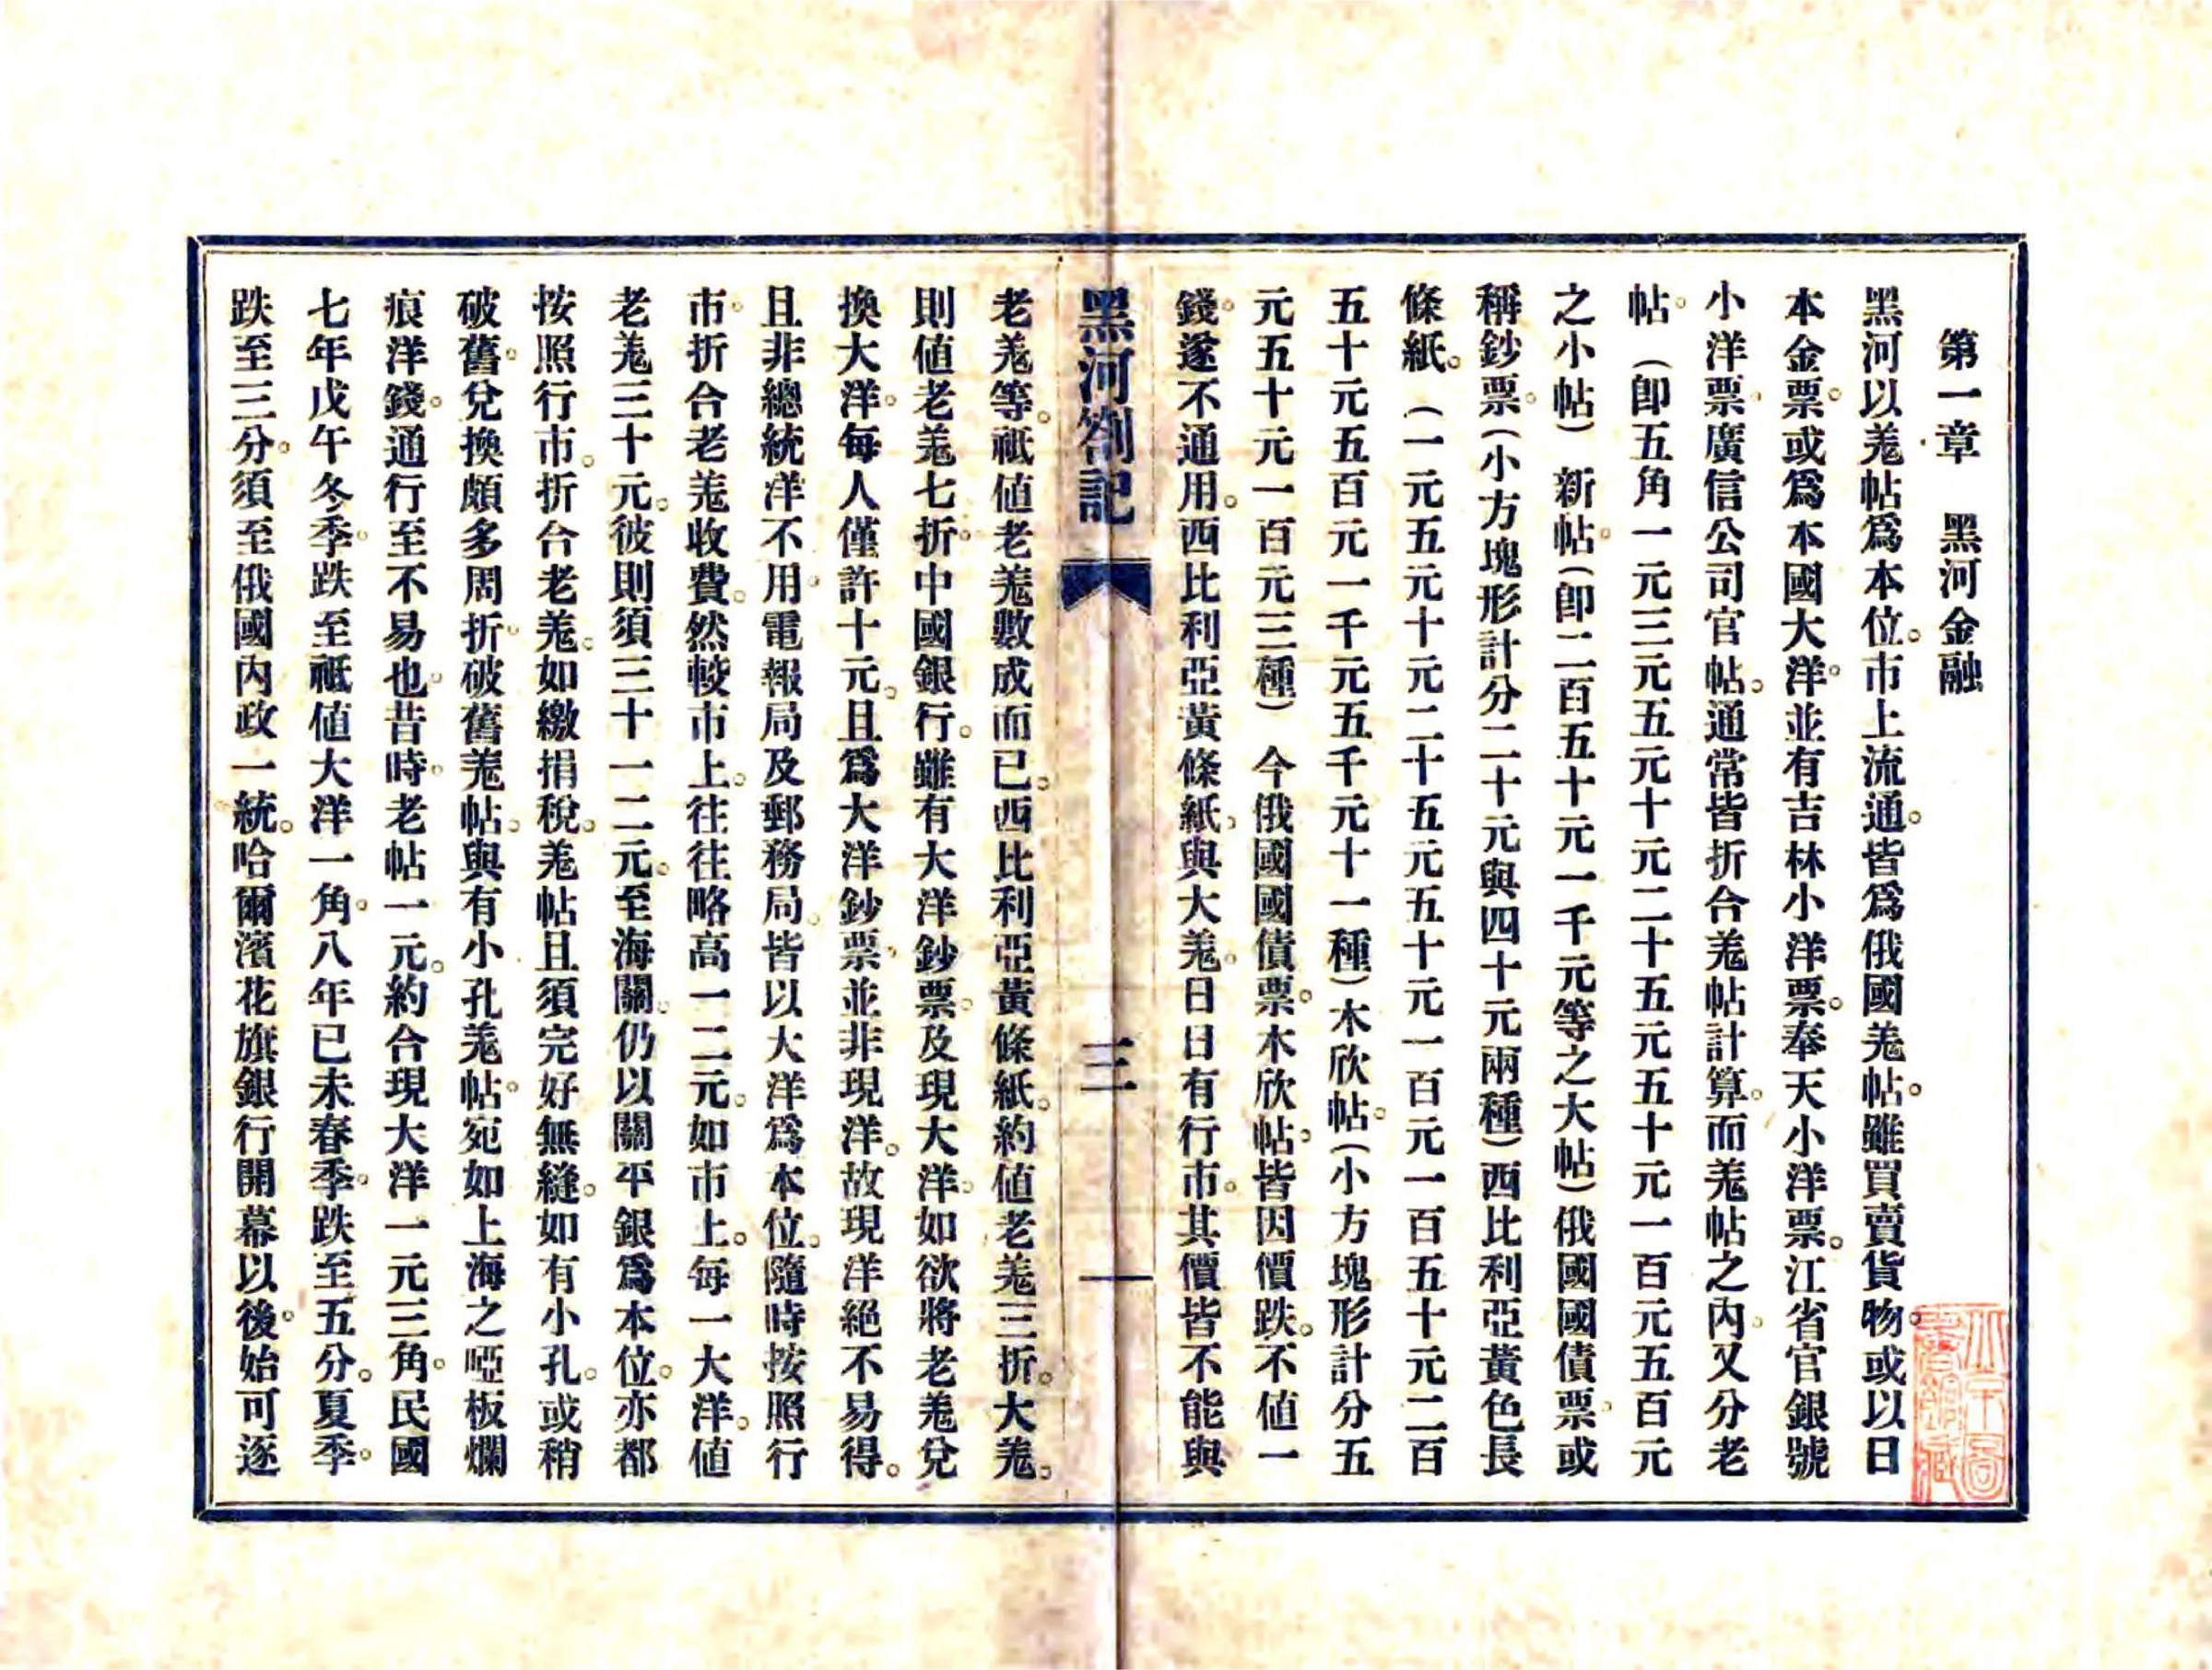 第一章　黑河金融
黑河以羗帖爲本位。市上流通。皆爲俄國羗帖。雖買賣貨物。或以日
本金票。或爲本國大洋。並有吉林小洋票。奉天小洋票。江省官銀號
小洋票。廣信公司官帖。通常皆折合羗帖計算。而羗帖之內。又分老
帖。（卽五角一元三元五元十元二十五元五十元一百元五百元
之小帖）新帖。（卽二百五十元一千元等之大帖）俄國國債票。或
稱鈔票。（小方塊形計分二十元與四十元兩種）西比利亞黃色長
條紙。（一元五元十元二十五元五十元一百元一百五十元二百
五十元五百元一千元五千元十一種）木欣帖。（小方塊形計分五
元五十元一百元三種）今俄國國債票。木欣帖。皆因價跌。不値一
錢。遂不通用。西比利亞黃條紙。與大羗。日日有行市。其價皆不能與
黑河劄記　三　一
老羗等。祇値老羗數成而已。西比利亞黃條紙。約値老羗三折。大羗。
則値老羗七折。中國銀行。雖有大洋鈔票。及現大洋。如欲將老羗兌
換大洋。每人僅許十元。且爲大洋鈔票。並非現洋。故現洋絕不易得。
且非總統洋不用。電報局及郵務局。皆以大洋爲本位。隨時按照行
市。折合老羗收費。然較市上。往往略高一二元。如市上。每一大洋。値
老羗三十元。彼則須三十一二元。至海關。仍以關平銀爲本位。亦都
按照行市。折合老羗。如繳捐稅。羗帖且須完好無縫。如有小孔。或稍
破舊。兌換頗多周折。破舊羗帖。與有小孔羗帖。宛如上海之啞板爛
痕洋錢。通行至不易也。昔時。老帖一元。約合現大洋一元三角。民國
七年戊午冬季。跌至祇値大洋一角。八年已未春季。跌至五分。夏季。
跌至三分。須至俄國內政一統。哈爾濱花旗銀行開幕以後。始可逐